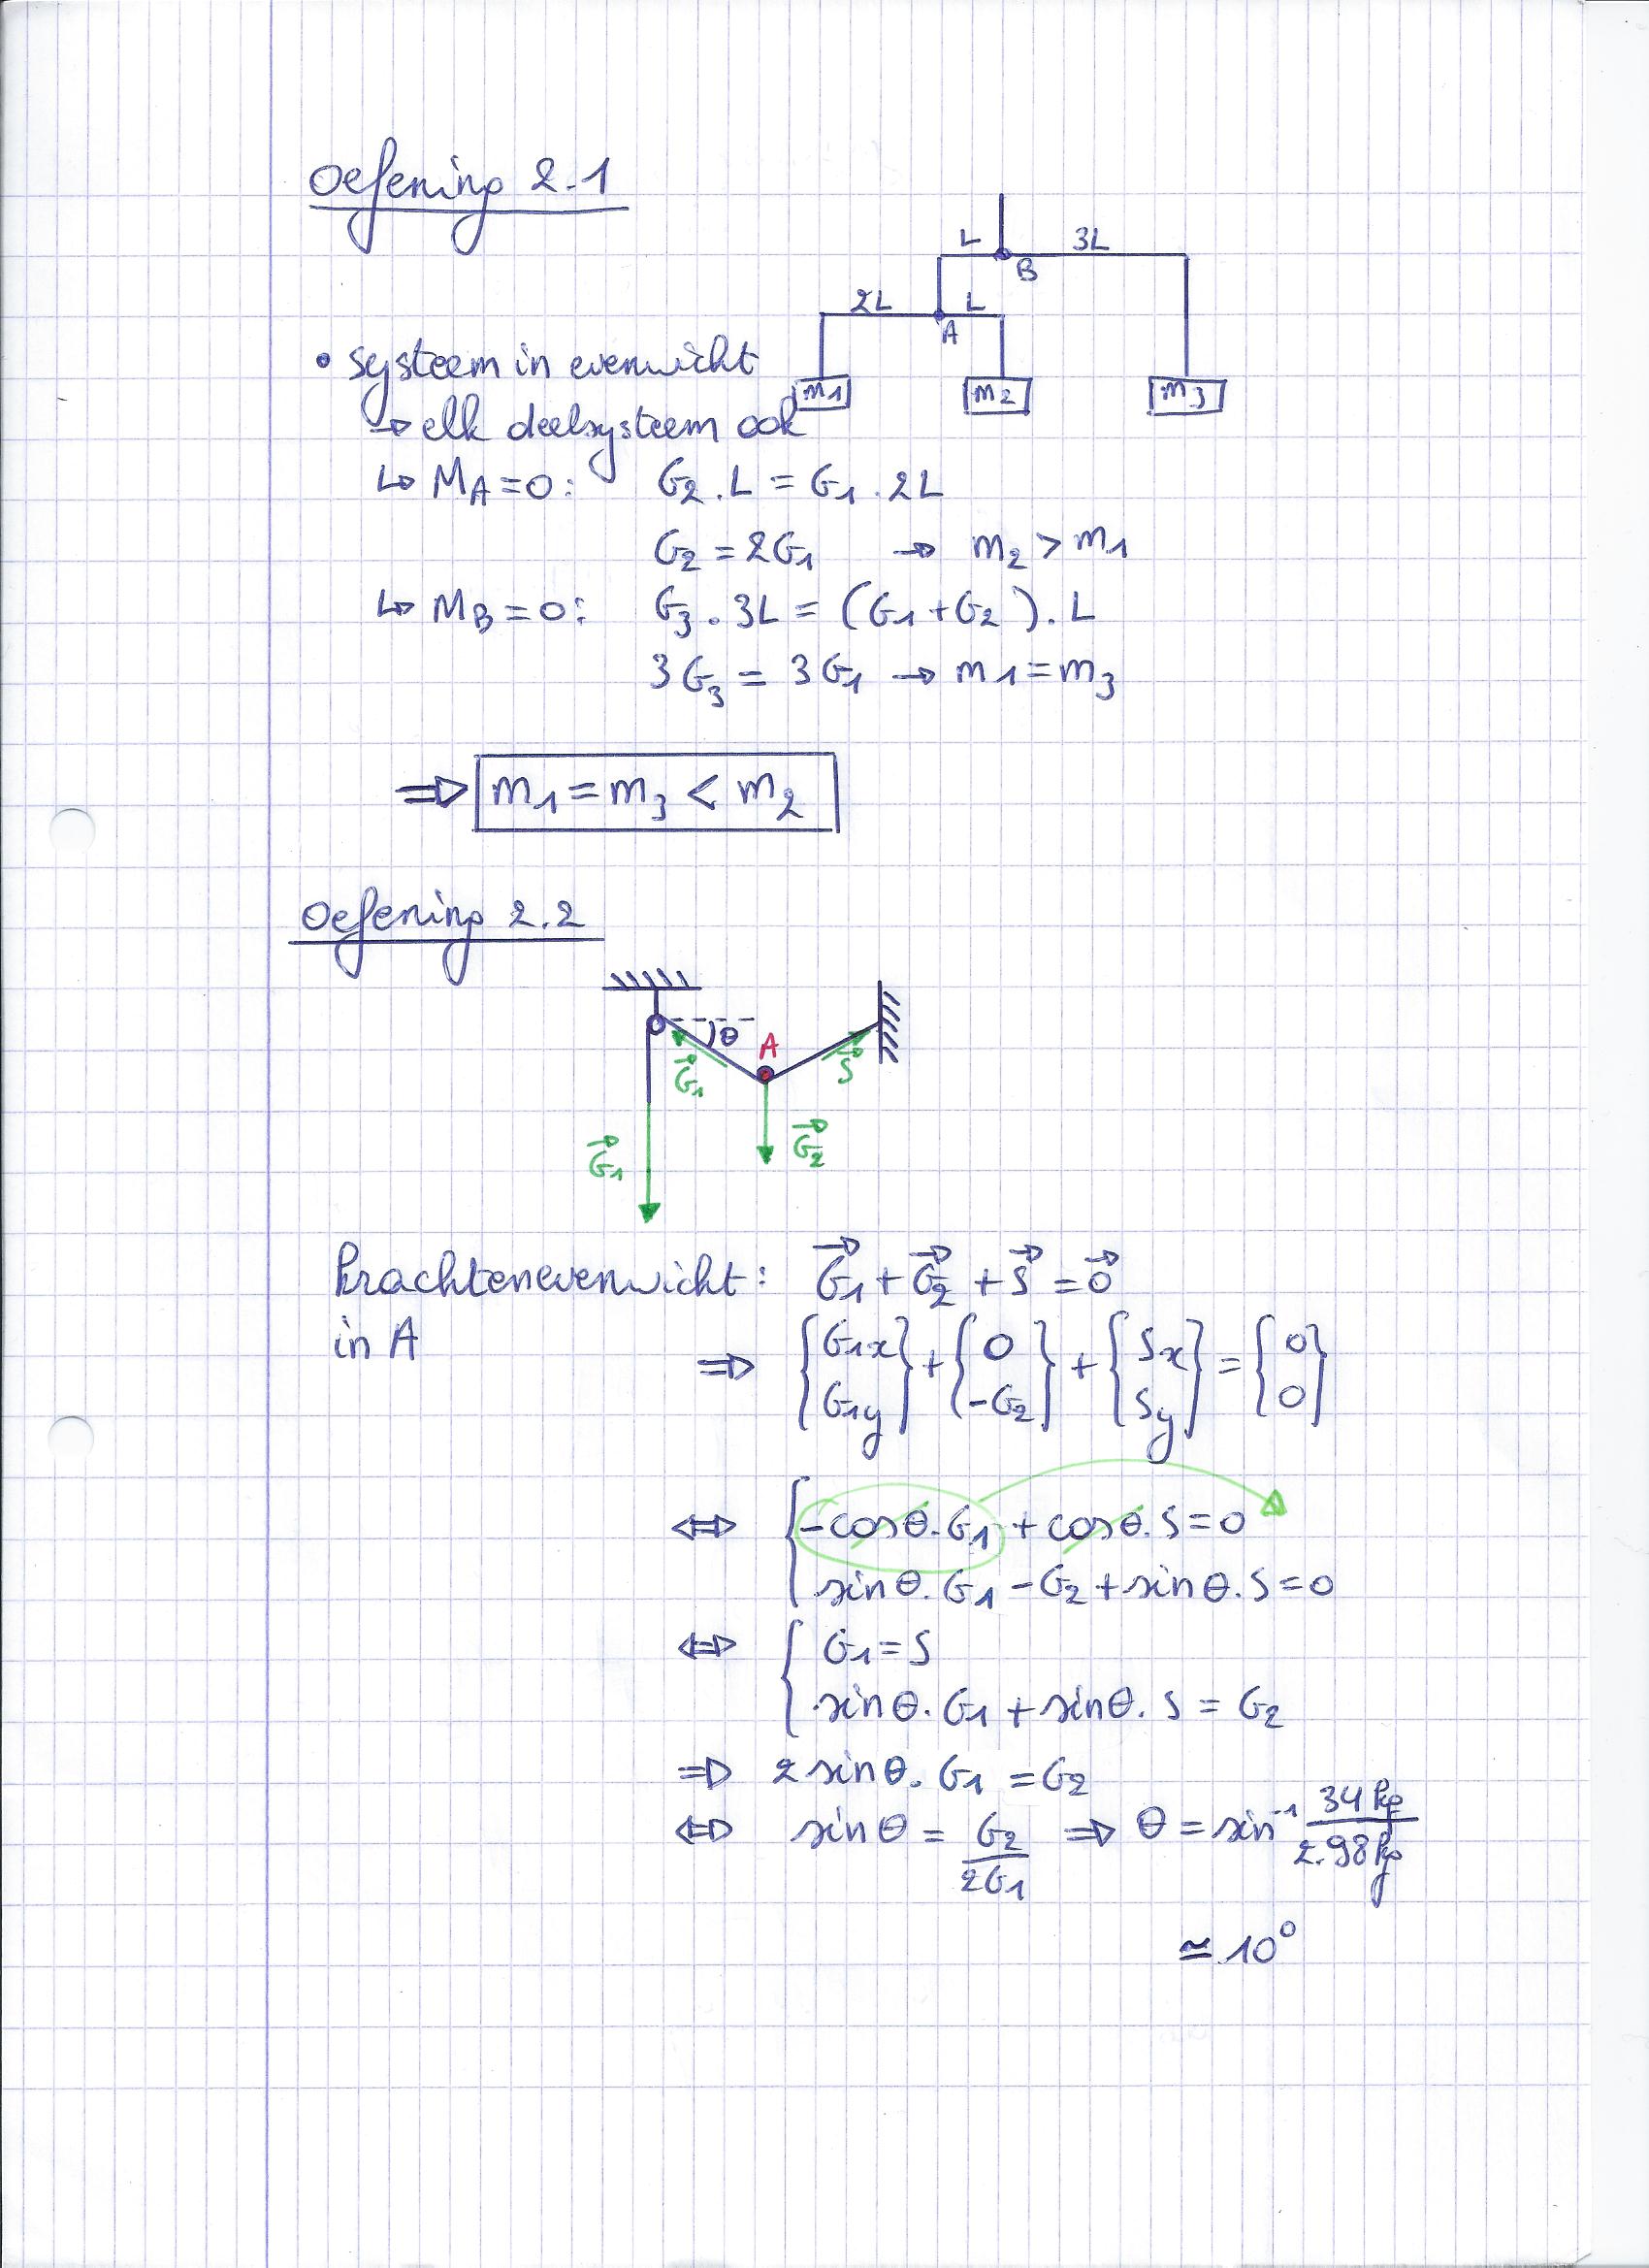 Oefening 2.1
L 3L
B
2L L
A
• systeem in evenwicht
m1 m2 m3
→ elk deelsysteem ook
↳ M_A = 0: G₂ . L = G₁ . 2L
G₂ = 2G₁ → m₂ > m₁
↳ M_B = 0: G₃ . 3L = (G₁ + G₂) . L
3G₃ = 3G₁ → m1 = m₃
⇒ m₁ = m₃ < m₂
Oefening 2.2
θ A
G₁ S
G₁ G₂
Krachtenevenwicht: G₁ + G₂ + S = 0
in A
⇒ {G₁x G₁y} + {0 -G₂} + {Sx Sy} = {0 0}
⇔ { -cosθ.G₁ + cosθ.S = 0
sinθ.G₁ - G₂ + sinθ.S = 0
⇔ { G₁ = S
sinθ.G₁ + sinθ.S = G₂
⇒ 2 sinθ.G₁ = G₂
⇔ sinθ = G₂/2G₁ ⇒ θ = sin⁻¹ 34 kg/2.98 kg
≃ 10°